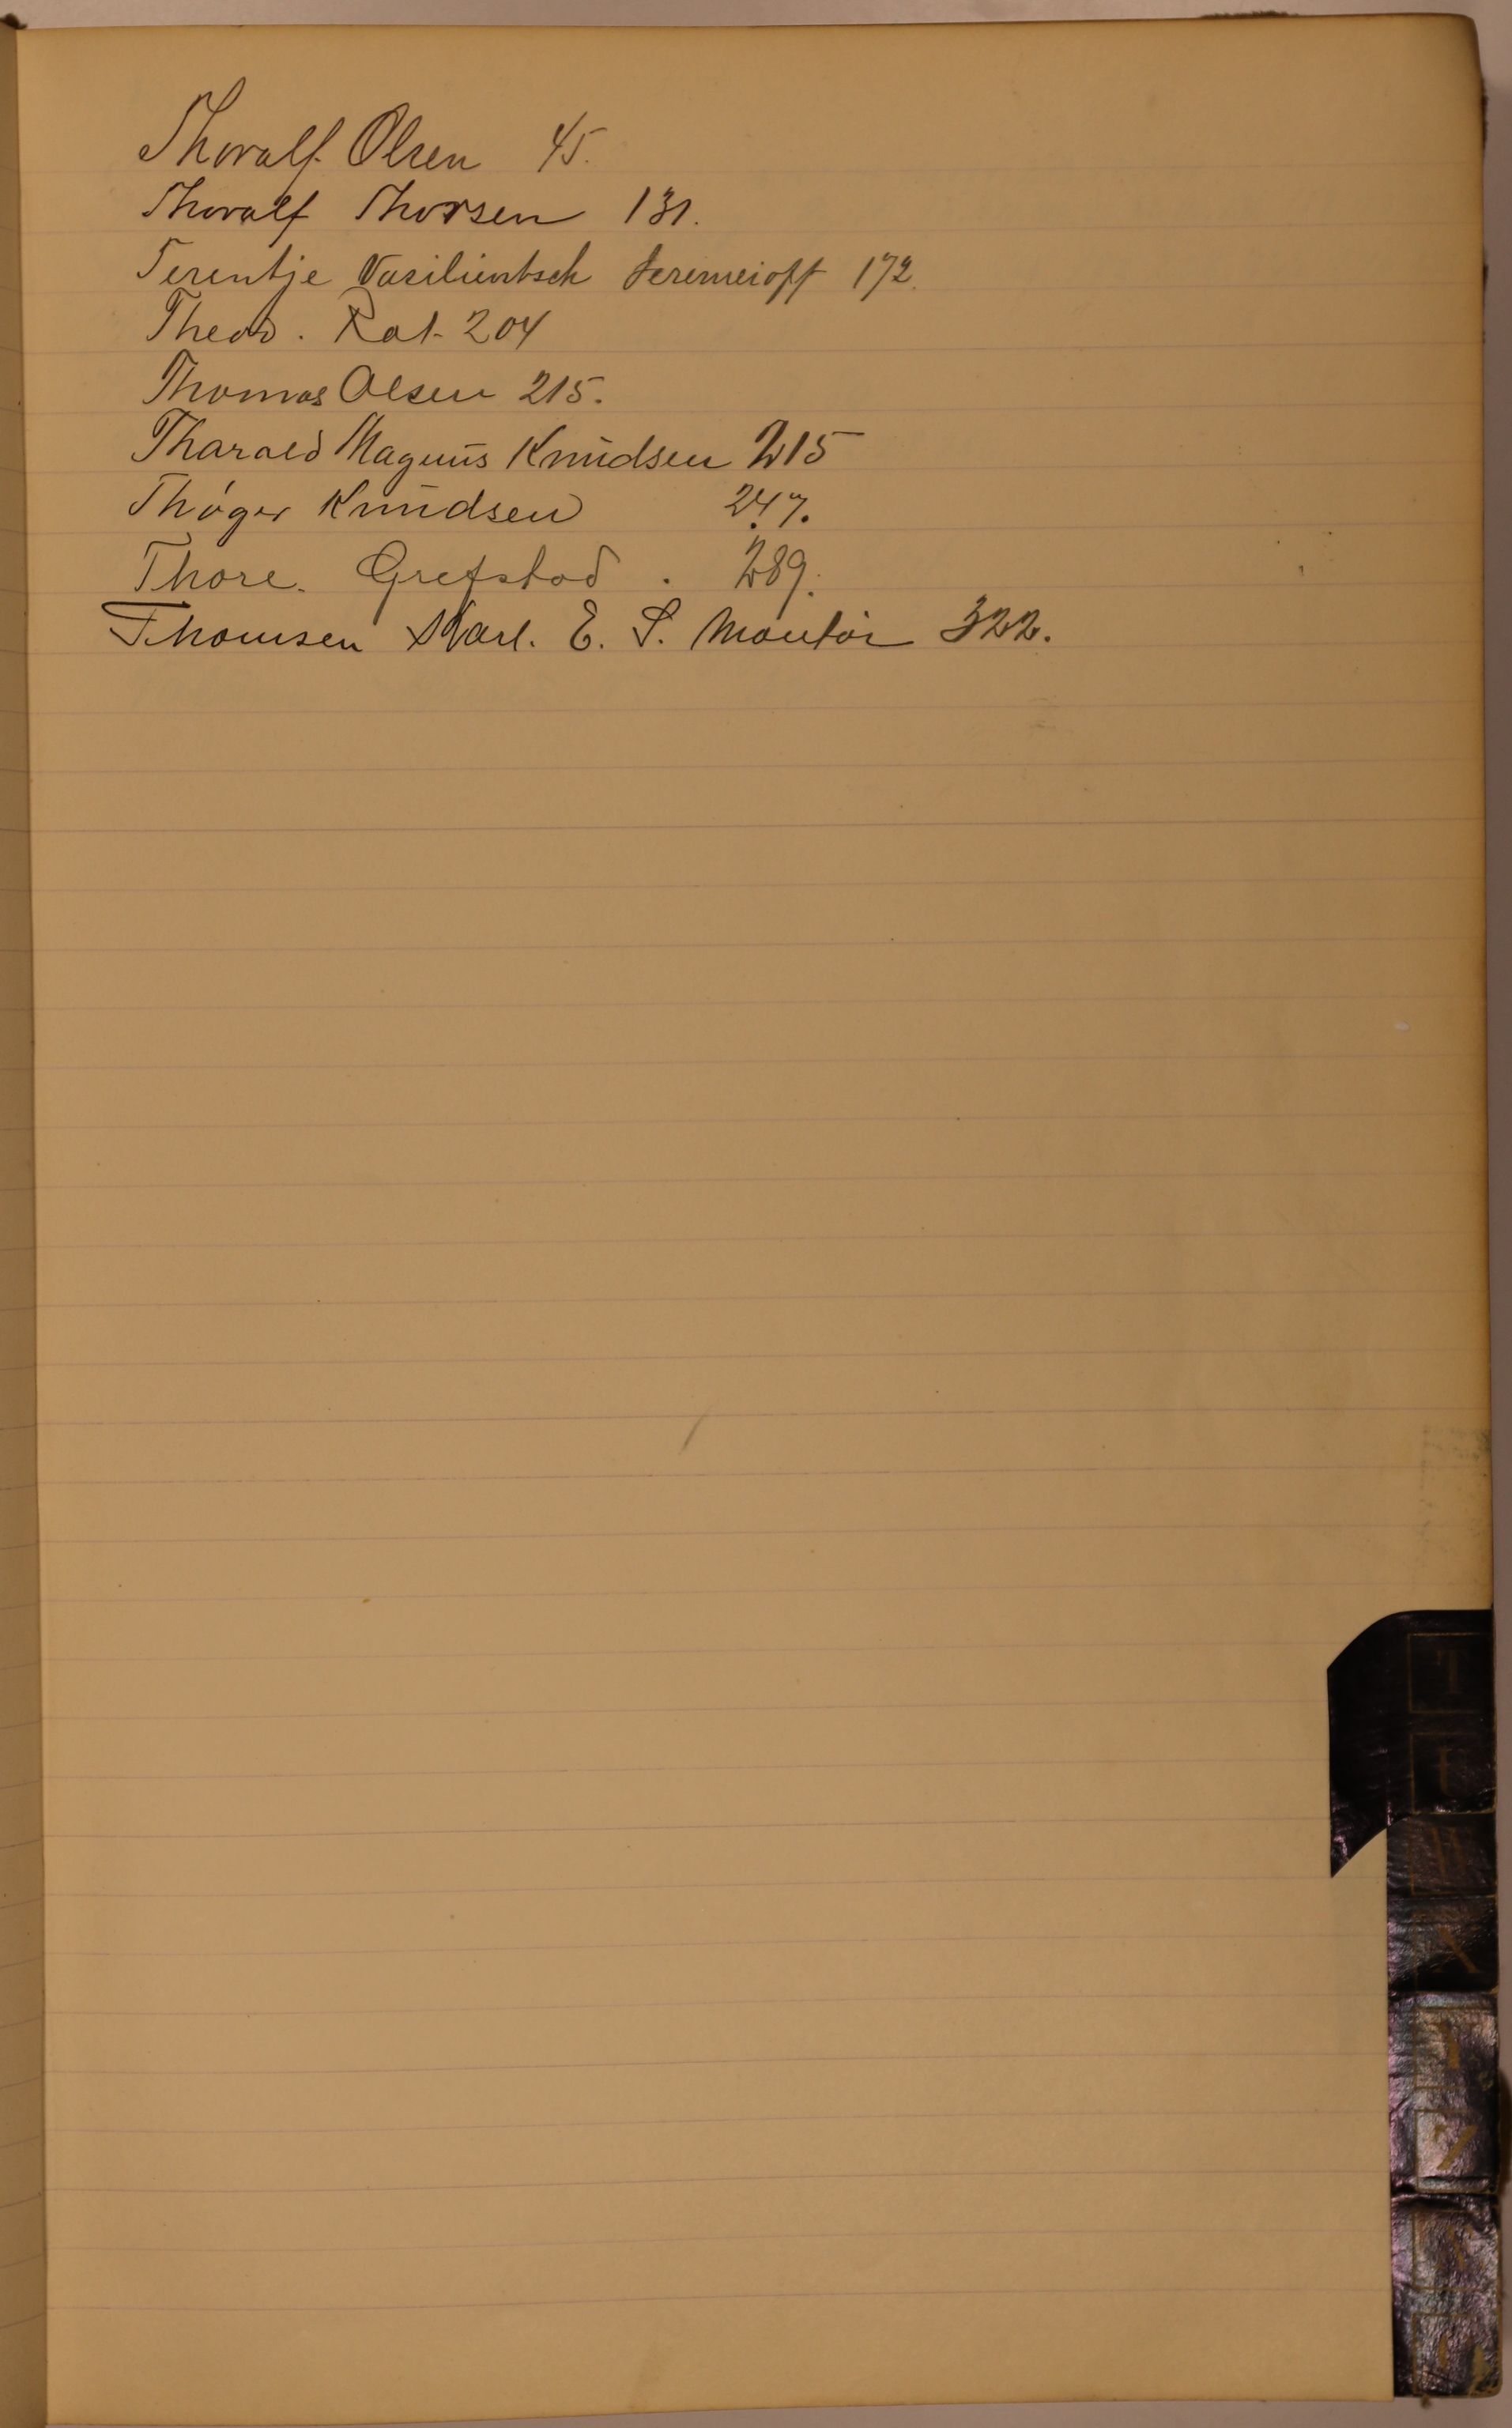 Thoralf Olsen 45.
Thoralf Thorsen 131.
Terentje Vasilientsch Jeremeioff 172.
Theod. Rat. 204
Thomas Olsen 215.
Tharald Magnus Knudsen 215
Thóger Knudsen 247.
Thore. Grefstad. 289.
Thomsen Karl. E. S. Montör 322.
T
U
W
X
Y
Z